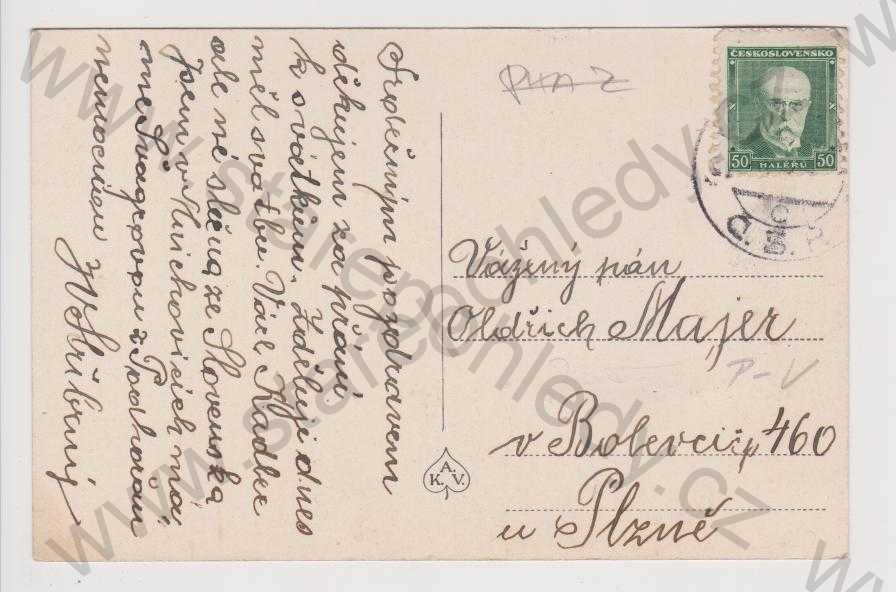 Srdečným pozdravem
děkujem za přání
k svátkům. Zděluji dnes
měl svatbu Václ. Kadlec
ale né slečna ze Slovenska
jsem v Hnichovicích má
mne Švagrovou z Podhořan
nemocnou JV Stříbrný
ČESKOSLOVENSKO
50 HALÉŘŮ 50
Č. S. R.
Vážený pán
Oldřich Majer
P-V
v Bolevci čp 460
u Plzně
K. A. V.
www.starepohledy.cz